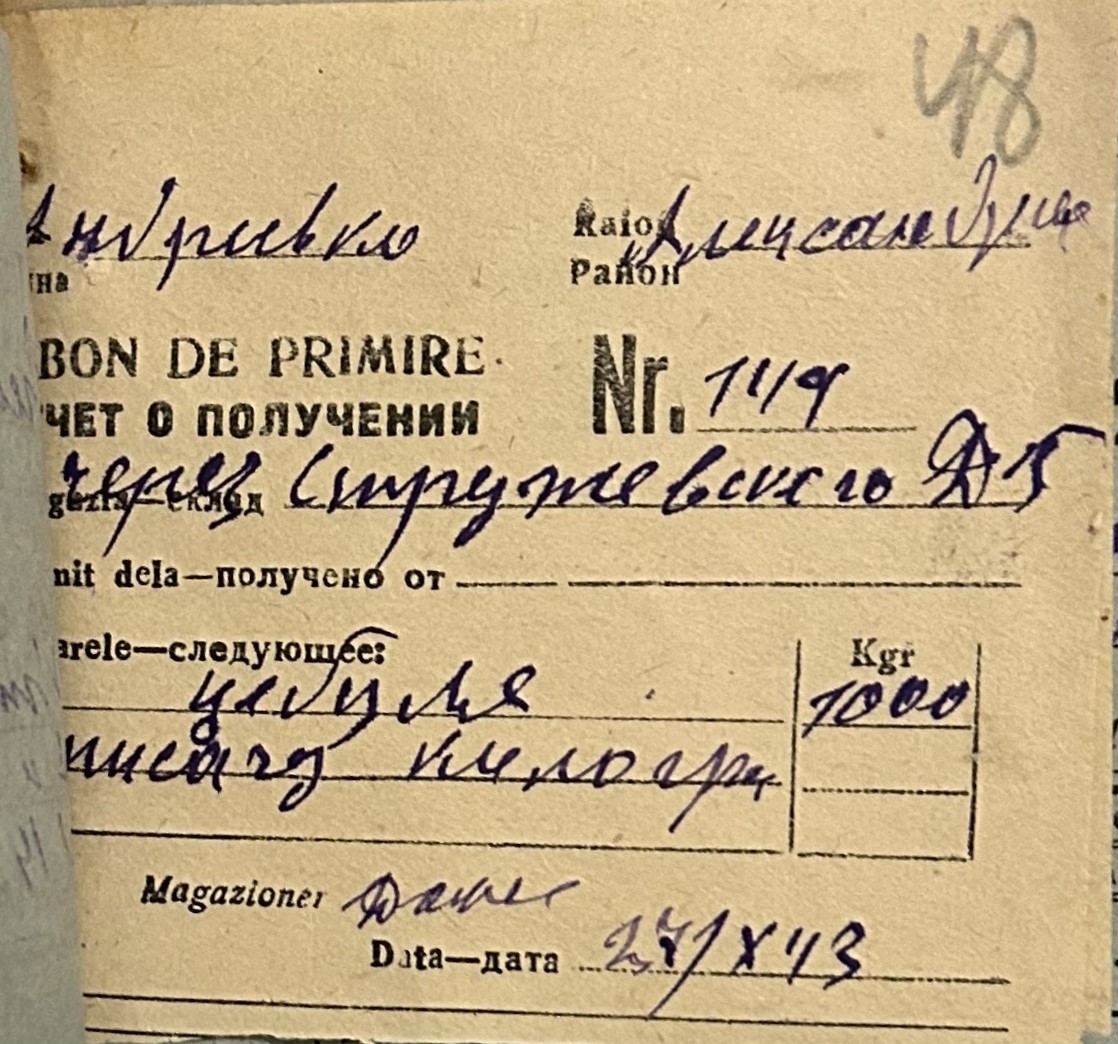 48
Андриевка Raion
на Район
BON DE PRIMIRE Nr. 149
чет о получении
через Стружевского Д В
gazia—склад
mit dela—получено от
arele—следующее: Kgr
цебуля 1000
тисячу килогра
Magazioner
Data—дата 27/X 43